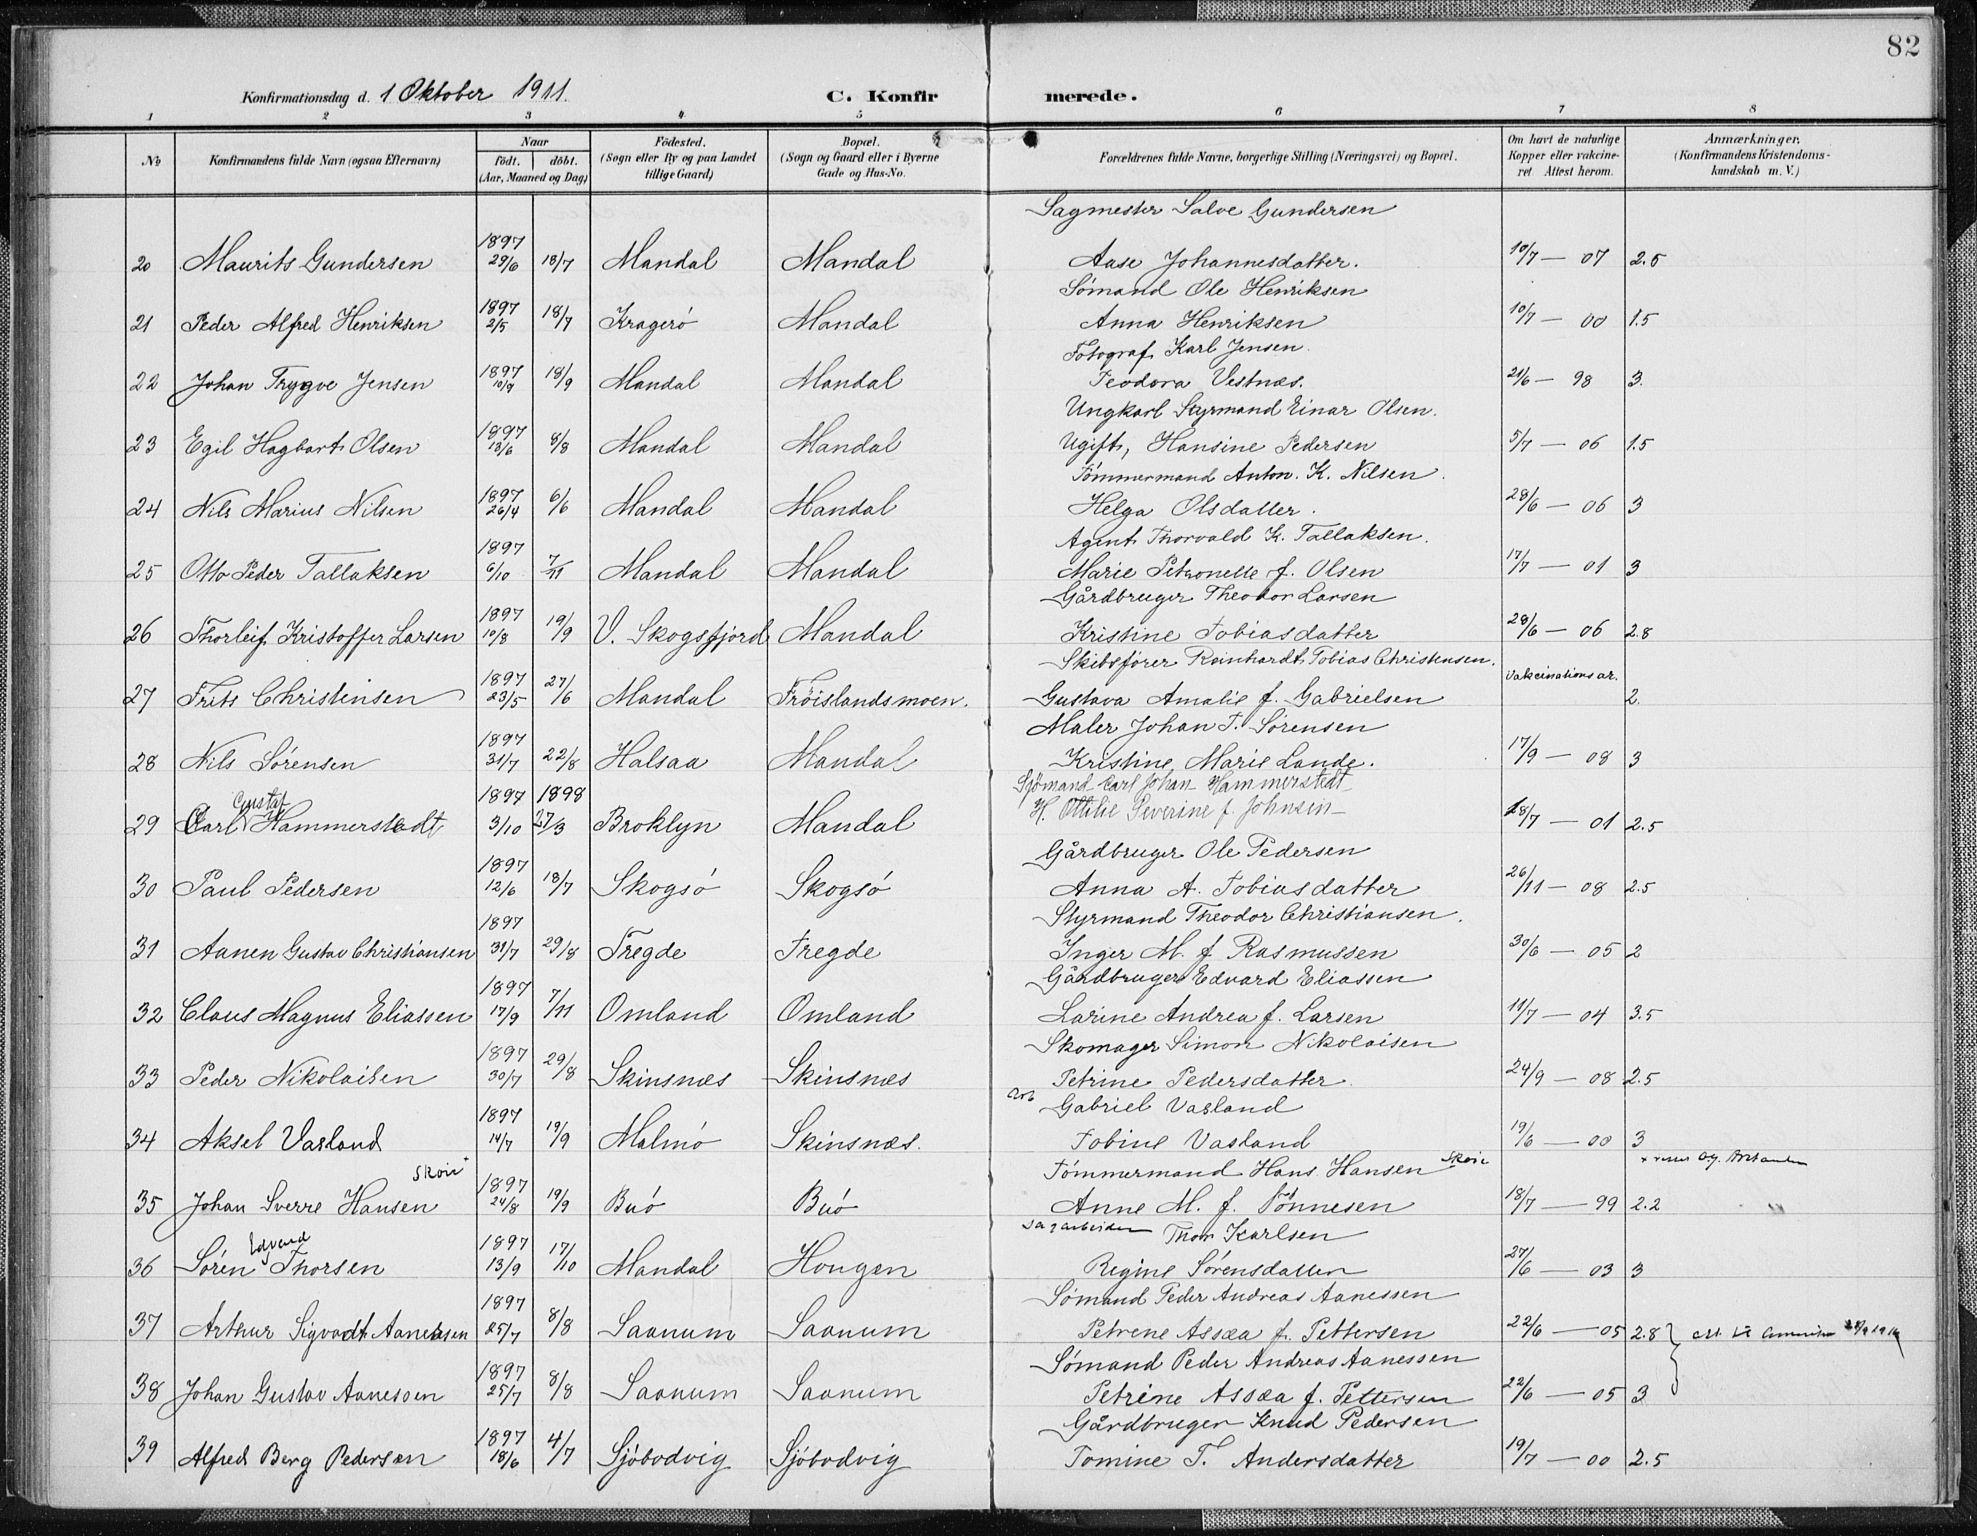 82
Konfirmationsdag d. 1 Oktober 1911. C. Konfirmerede.
1 2 3 4 5 6 7 8
No
Konfirmandens fulde Navn (ogsaa Efternavn)
Naar
født. døbt.
(Aar, Maaned og Dag)
Födested.
(Sogn eller By og paa Landet tillige Gaard)
Bopæl.
(Sogn og Gaard eller i Byerne Gade og Hus-No.
Forældrenes fulde Navne, borgerlige Stilling (Næringsvei) og Bopæl.
Om havt de naturlige Kopper eller vakcineret Attest herom.
Anmærkninger.
(Konfirmandens Kristendomskundskab m. V.)
Sagmester Salve Gundersen
20 Maurits Gundersen 1897 29/6 18/7 Mandal Mandal Aase Johannesdatter. 10/7 — 07 2.5
Sømand Ole Henriksen
21 Peder Alfred Henriksen 1897 2/5 18/7 Kragerö Mandal Anna Henriksen 10/7 — 00 1.5
Fotograf Karl Jensen.
22 Johan Trygve Jensen 1897 10/9 18/9 Mandal Mandal Teodora Vestnæs. 21/6 — 98 3.
Ungkarl Styrmand Einar Olsen.
23 Egil Hagbart Olsen 1897 13/6 8/8 Mandal Mandal Ugift, Hansine Pedersen 5/7 — 06 1.5
Tömmermand Anton. K. Nilsen.
24 Nils Marius Nilsen 1897 26/4 6/6 Mandal Mandal Helga Olsdatter. 28/6 — 06 3
Agent Thorvald K. Tallaksen.
25 Otto Peder Tallaksen 1897 6/10 7/11 Mandal Mandal Marie Petronelle f. Olsen 17/7 — 01 3
Gårdbruger Theodor Larsen
26 Thorleif Kristoffer Larsen 1897 10/8 19/9 V. Skogsfjord Mandal Kristine Tobiasdatter 28/6 — 06 2.8
Skibsfører Reinhardt Tobias Christensen.
27 Frits Christensen 1897 23/5 27/6 Mandal Frøislandsmoen. Gustava Amalie f. Gabrielsen Vakcinationsar. 2.
Maler Johan T. Sørensen
28 Nils Sørensen 1897 31/7 22/8 Halsaa Mandal Kristine Marie Lande. 17/9 — 08 3
Sjømand Carl Johan Hammerstedt
29 Carl Gustaf Hammerstedt 1897 3/10 1898 27/3 Broklyn Mandal H. Ottilie Severine f. Johnsen 18/7 — 01 2.5
Gårdbruger Ole Pedersen
30 Paul Pedersen 1897 12/6 18/7 Skogsö Skogsö Anna A. Tobiasdatter 26/11 — 08 2.5
Styrmand Theodor Christiansen.
31 Aanen Gustav Christiansen 1897 31/7 29/8 Tregde Tregde Inger M. f Rasmussen 30/6 — 05 2
Gårdbruger Edvard Eliassen
32 Claus Magnus Eliassen 1897 17/9 7/11 Omland Omland Larine Andrea f. Larsen 11/7 — 04 3.5
Skomager Simon Nikolaisen
33 Peder Nikolaisen 1897 30/7 29/8 Skinsnæs Skinsnæs Petrine Pedersdatter. 24/9 — 08 2.5
Arb Gabriel Vasland
34 Aksel Vasland 1897 14/7 19/9 Malmö Skinsnæs. Tobine Vasland 19/6 — 00 3
Tömmermand Hans Hansen Skoie
35 Johan Sverre Hansen Skoie 1897 24/8 19/9 Buö Buö Anne M. f. Tönnesen 18/7 — 99 2.2
Sagarbeider Thor Karlsen
36 Sören Edvard Thorsen 1897 13/9 17/10 Mandal Hougen Regine Sörensdatter 27/6 — 03 3
Sømand Peder Andreas Aanessen
37 Arthur Sigvadt Aanessen 1897 25/7 8/8 Saanum Saanum Petrene Assæa f. Pettersen 22/6 — 05 2.8
Sømand Peder Andreas Aanessen
38 Johan Gustav Aanessen 1897 25/7 8/8 Saanum Saanum Petrine Assæa f. Pettersen 22/6 — 05 3
Gårdbruger Knud Pedersen
39 Alfred Berg Pedersen 1897 18/6 4/7 Sjöbodvig Sjöbodvig Tomine T. Andersdatter 19/7 — 00 2.5